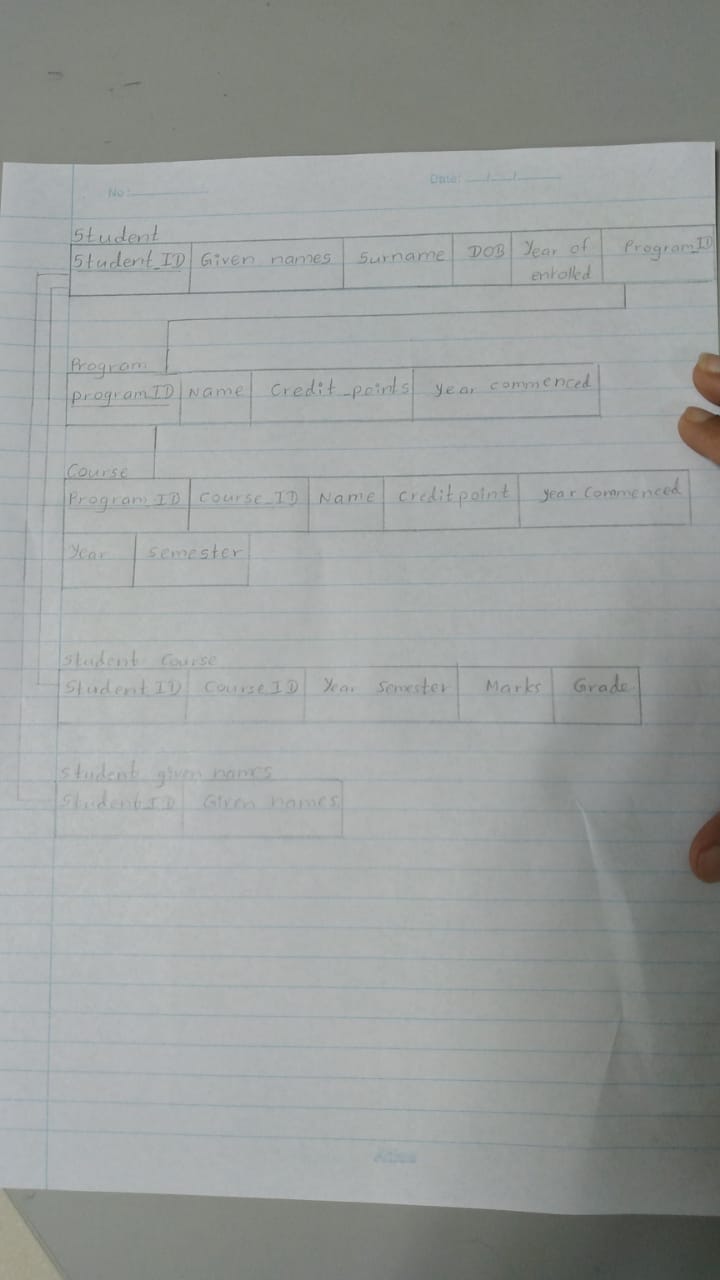 No: Date: / /
Student
Student_ID Given names Surname DOB Year of enrolled Program_ID
Program
program_ID Name Credit_points year commenced
Course
Program_ID Course_ID Name Creditpoint year Commenced
Year Semester
Student Course
Student ID Course_ID Year Semester Marks Grade
Student given names
Student_ID Given names